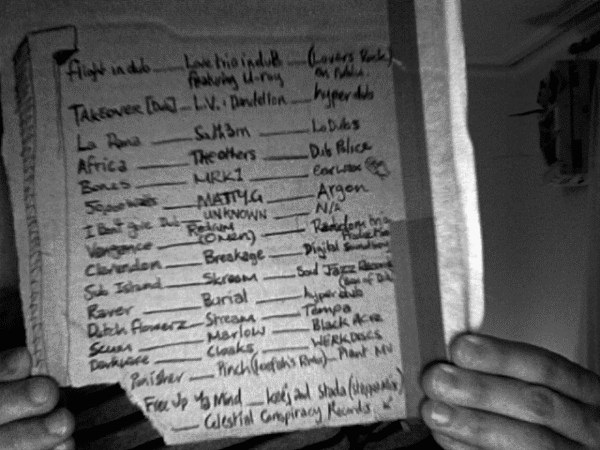 flight in dub — Love trio in dub (Lovers Rock)
featuring U-roy on
TAKEOVER [Dub] — L.V. + Dandelion — hyperdub
La Rana — Salt3m — LoDubs
Africa — The others — Dub Police
Bones — MRK1 — earwax
MATTY.G — Argon
I Don't give Dub — UNKNOWN — N/A
Vengence — Redium (Omen) — Random trio Production
Clarendon — Breakage — Digital Soundboy
Sub Island — Skream — Soul Jazz Records (Box of Dub)
Raver — Burial — hyperdub
Dutch flowerz — Stream — Tempa
Scum — Marlow — Black Acre
Darkwave — Cloaks — WERKDISCS
Punisher — Pinch (loefah's Remix) — Planet MU
Free Up Ya Mind — and
— Celestial Conspiracy Records